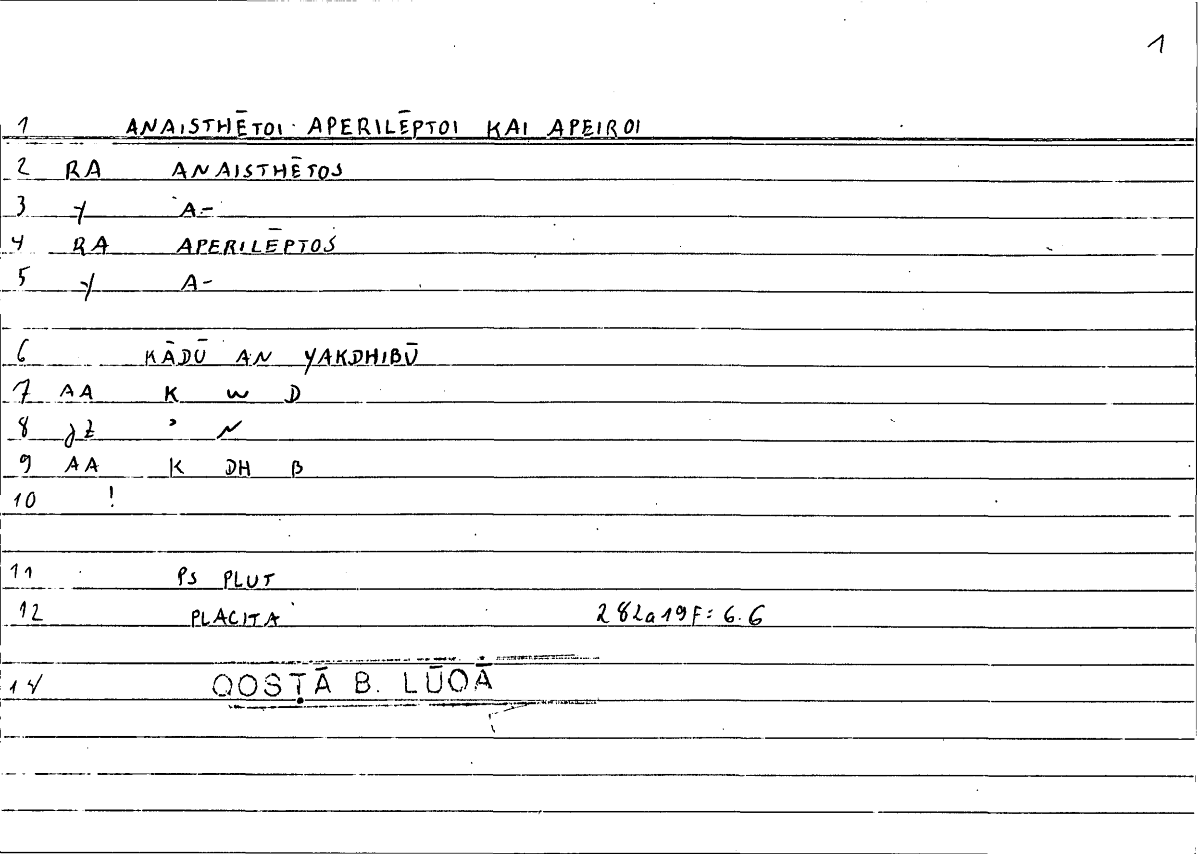 1
1 ANAISTHĒTOI APERILĒPTOI KAI APEIROI
2 RA ANAISTHĒTOS
3 y A-
4 RA APERILĒPTOS
5 y A-
6 KĀDŪ AN YAKDHIBŪ
7 AA K W D
8 ʾ N
9 AA K DH B
10 !
11 PS PLUT
12 PLACITA 282a19F: 6.6
14 QOSṬĀ B. LŪQĀ